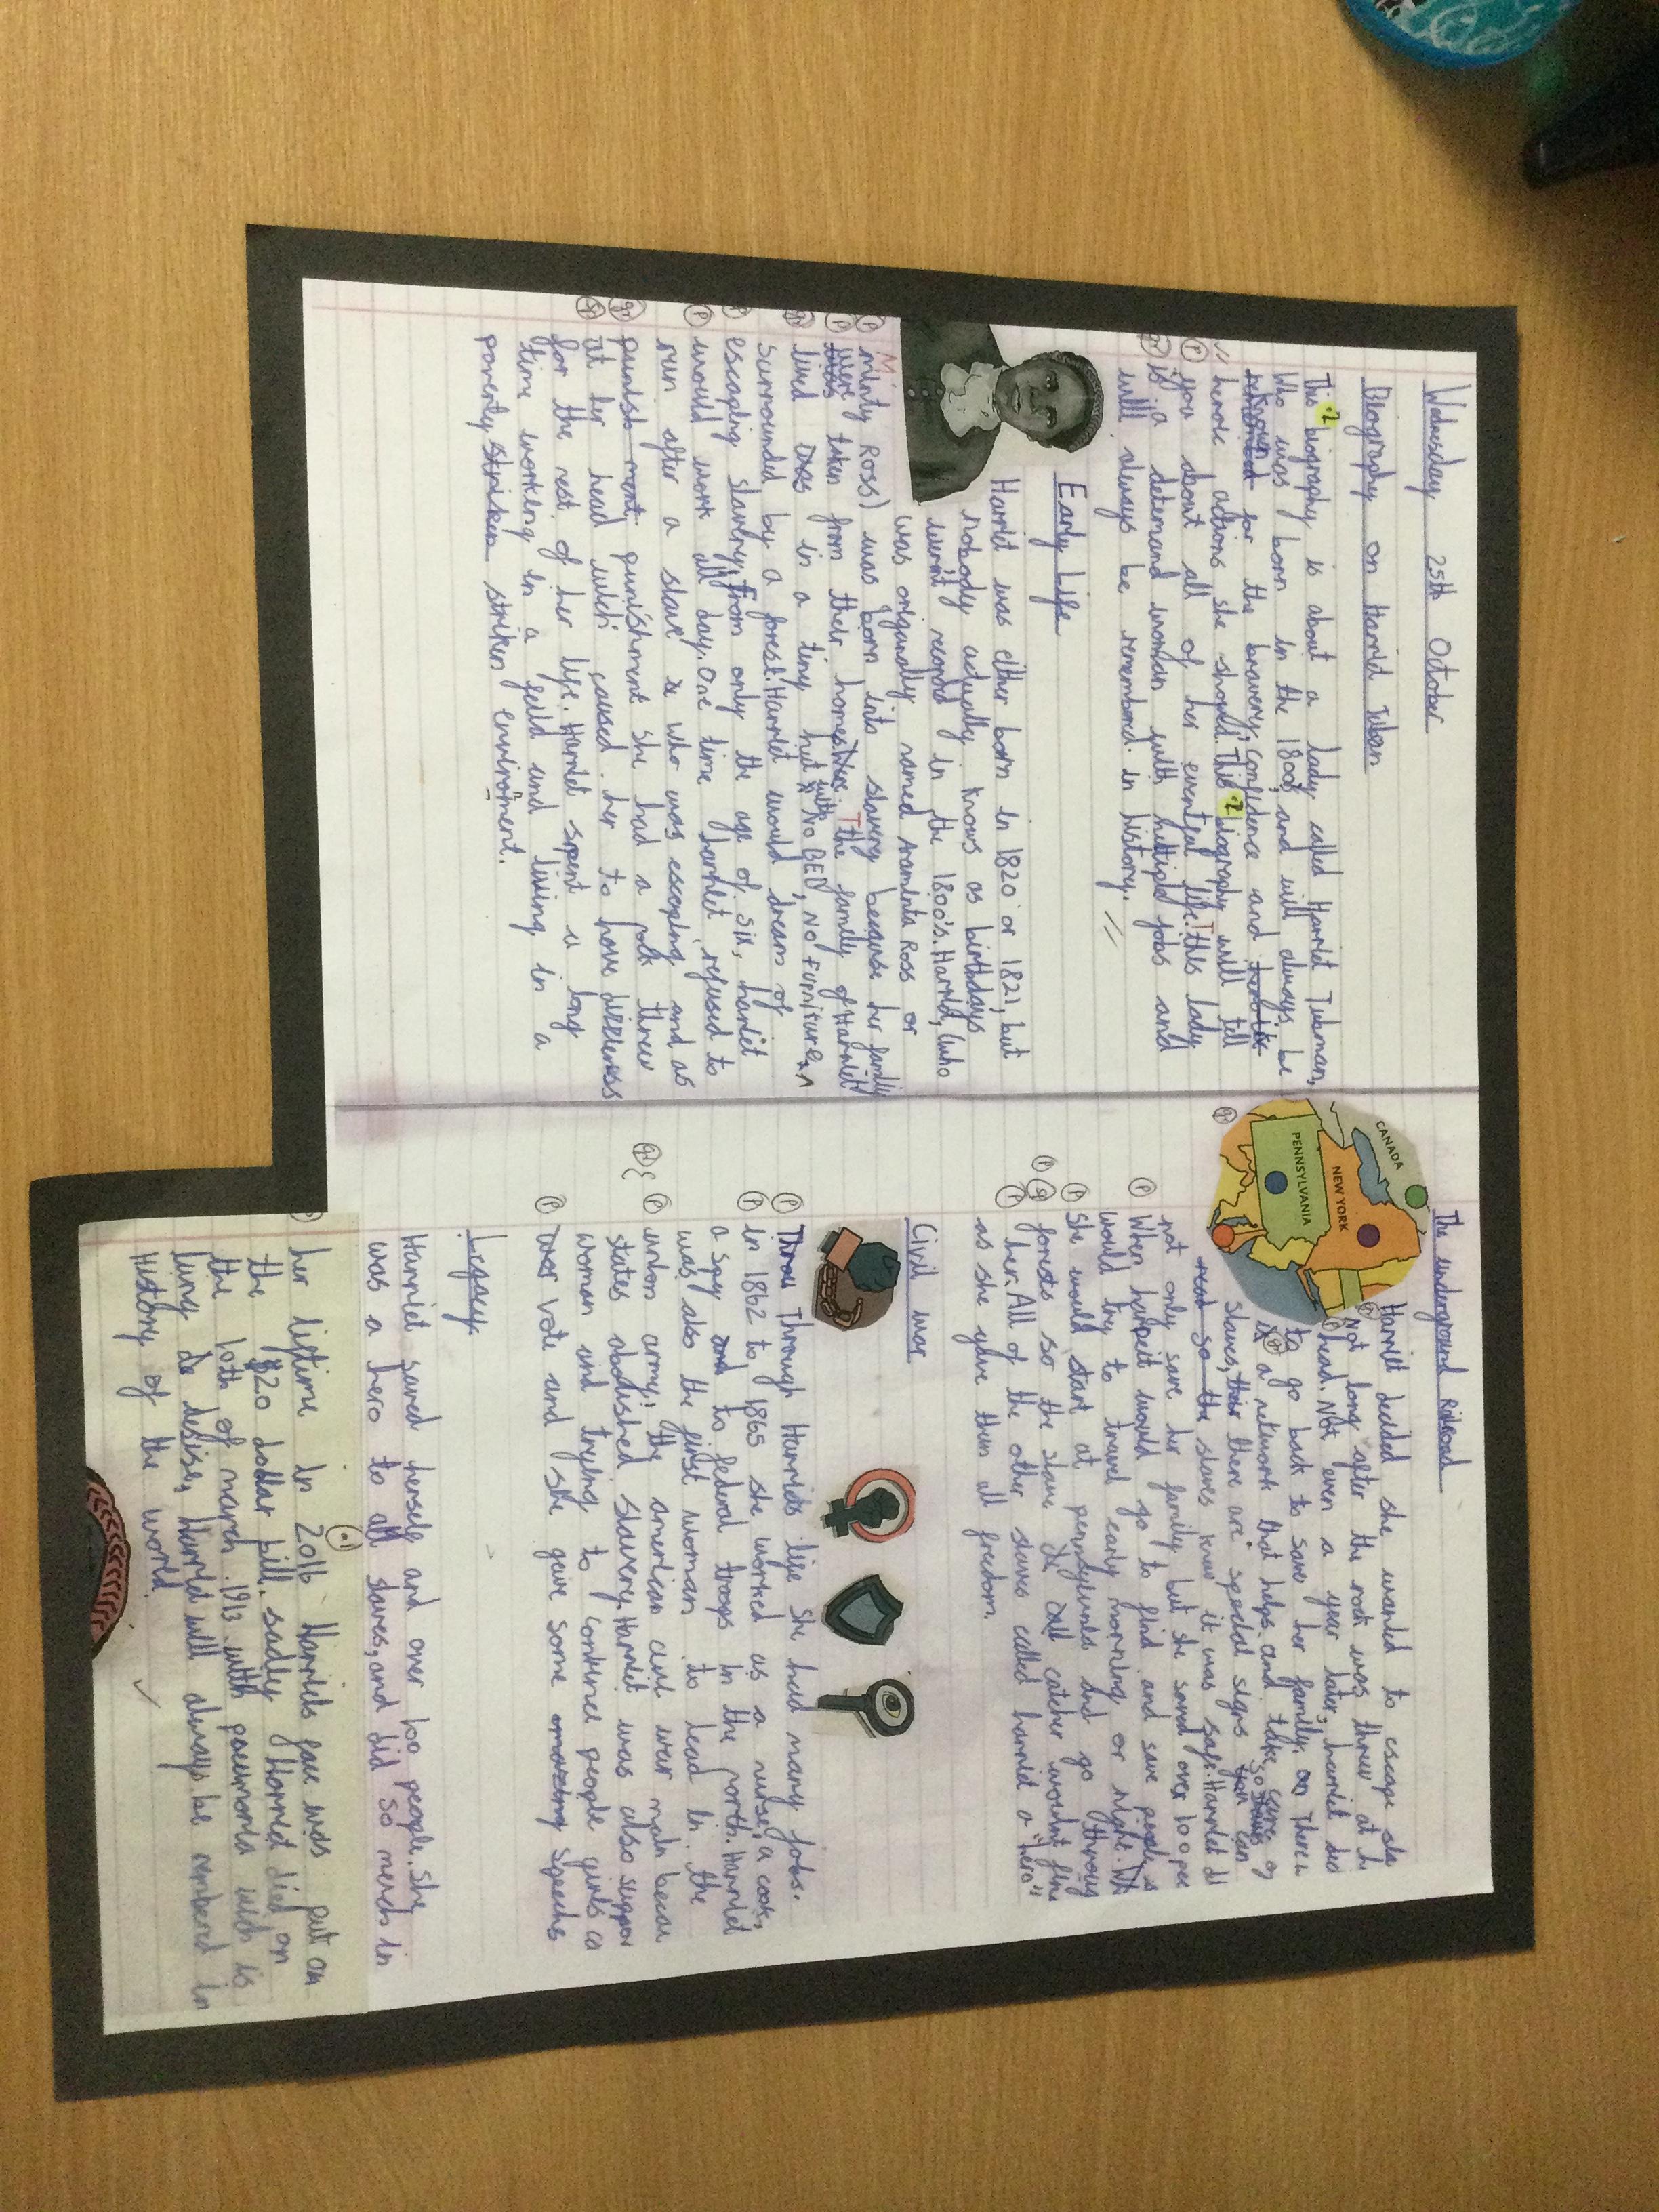 Wednesday 25th October
Biography on Harriet Tubman
This biography is about a lady called Harriet Tubman,
Who was born in the 1800s, and will always be
known for the bravery, confidence and
heroic actions she showed. This biography will tell
you about all of her eventful life. This lady
is a determand woman with multiple jobs and
will always be remembered in history.
Early Life
Harriet was either born in 1820 or 1821, but
nobody actually knows as birthdays
weren't record in the 1800's. Harriet, (who
was origanally named Araminta Ross or
minty Ross) was born into slavery because her family
were taken from their homes. The family of Harriet
lived in a tiny hut with NO BED, NO FURNITURE,
surrounded by a forest. Harriet would dream of
escaping slavery. From only the age of six, harriet
would work all day. One time harriet refused to
run after a slave who was escaping and as
punishment she had a rock threw
at her head which caused her to have dizzeness
for the rest of her life. Harriet spent a long
time working in a feild and living in a
poverty striken enviroment.
The underground Railroad
CANADA
NEW YORK
PENNSYLVANIA
Harriet decided she wanted to escape sla
Not long after the rock was threw at h
head. Not even a year later, harriet did
to go back to save her family. There
a network that helps and take care of
slaves, there are special signs so
the slaves know it was safe. Harriet di
not only save her family but she saved over 100 peo
When harriet would go to find and save people s
would try to travel early morning or night.
She would start at pennsylvania and go throug
forests so the slave catcher wouldnt find
her. All of the other slaves called harriet a "hero"
as she gave them all freedom.
Civil war
Through Harriets life she had many jobs.
in 1862 to 1865 she worked as a nurse, a cook,
a spy to federal troops in the north. Harriet
was also the first woman to lead in the
union army; the american civil war main becau
states abolished slavery. Harriet was also suppor
woman and trying to convince people girls ca
vote and she gave some speechs
Legacy
Harriet saved herself and over 100 people. She
was a hero to all slaves, and did so merch in
her liftime in 2016 Harriets face was put on
the $20 dollar bill. sadly Harriet died on
the 10th of march 1913 with pneumonia wich is
lung desise, Harriet will always be rembered in
History of the world.